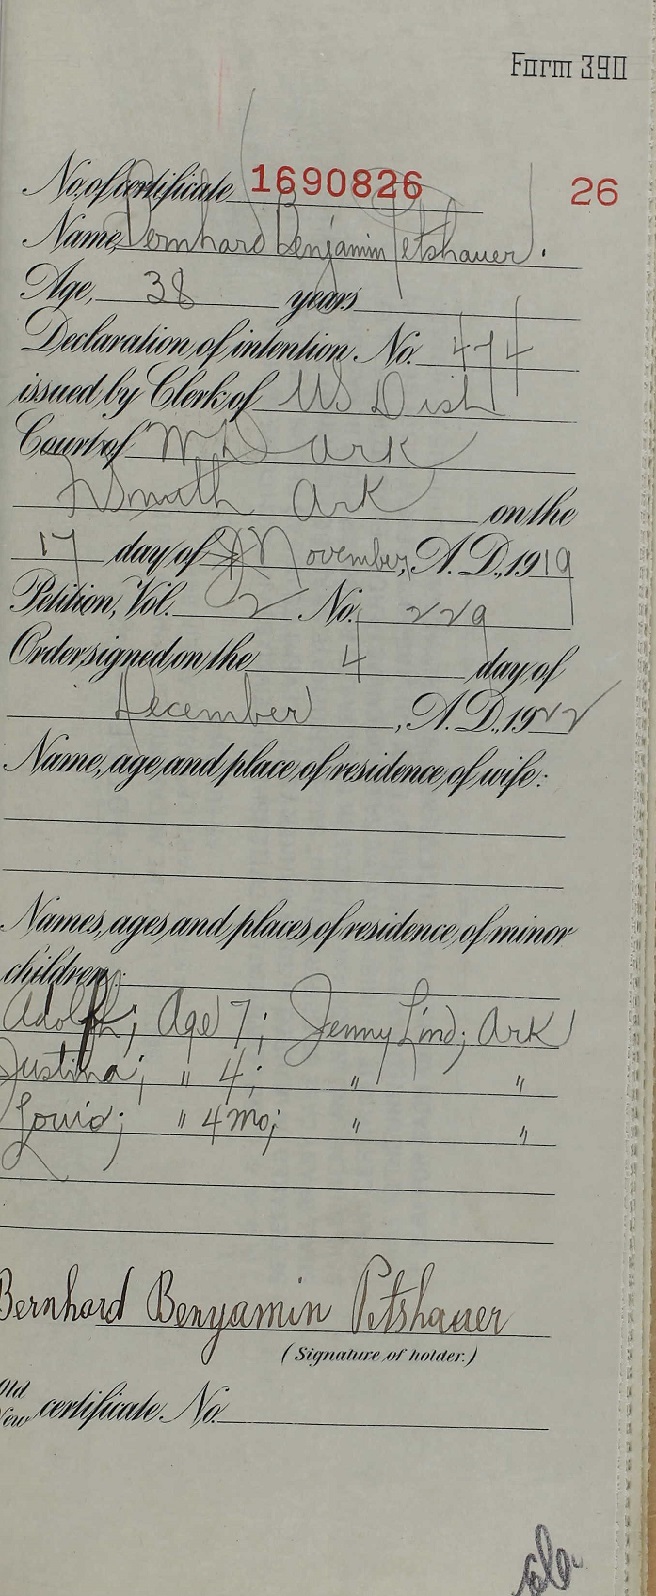 Form 390
No. of certificate 1690826 26
Name, Bernhard Benjamin Petshauer.
Age, 38 years
Declaration of intention No. 474
issued by Clerk of US Dist
Court of WD Ark
Ft Smith Ark on the
17 day of November, A. D., 1919
Petition, Vol. 2 No. 229
Order signed on the 4 day of
December, A. D., 1922
Name, age, and place of residence of wife:
Names, ages and places of residence of minor
children:
Adolph; Age 7; Jenny Lind; Ark
Justina; " 4; " "
Louis; " 4 mo; " "
Bernhard Benyamin Petshauer
(Signature of holder.)
Old
New certificate No.